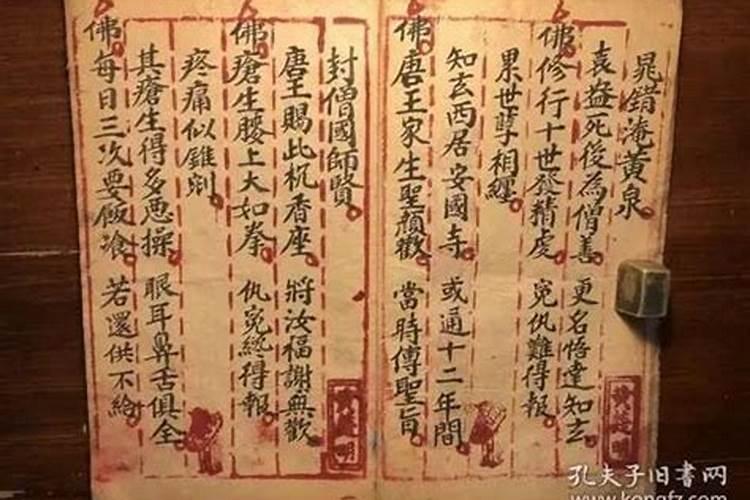 晁錯淹黃泉
袁盎死後為僧善 更名悟達知玄
佛修行十世發精虔 冤仇難得報
累世孽相纏
知玄西居安國寺 或通十二年間
佛唐王家生聖顏歡 當時傳聖旨
封僧國師賢
唐王賜此杋香座 將汝福謝無歡
佛瘡生腰上大如拳 仇冤終得報
疼痛似錐剜
其瘡生得多惡操 眼耳鼻舌俱全
佛每日三次要飯飡 若還供不給
孔夫子旧书网